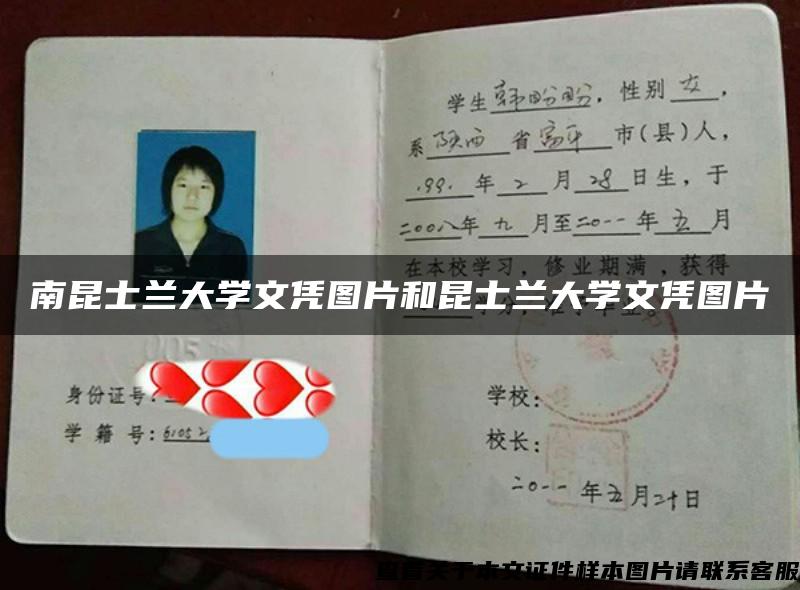 学生韩盼盼，性别女，
系陕西省富平市(县)人，
1991年2月28日生，于
二00八年九月至二0一一年五月
在本校学习，修业期满，获得
南昆士兰大学文凭图片和昆士兰大学文凭图片
身份证号:
学籍号:61052
学校:
校长:
二0一一年五月二十日
查看关于本文证件样本图片请联系客服